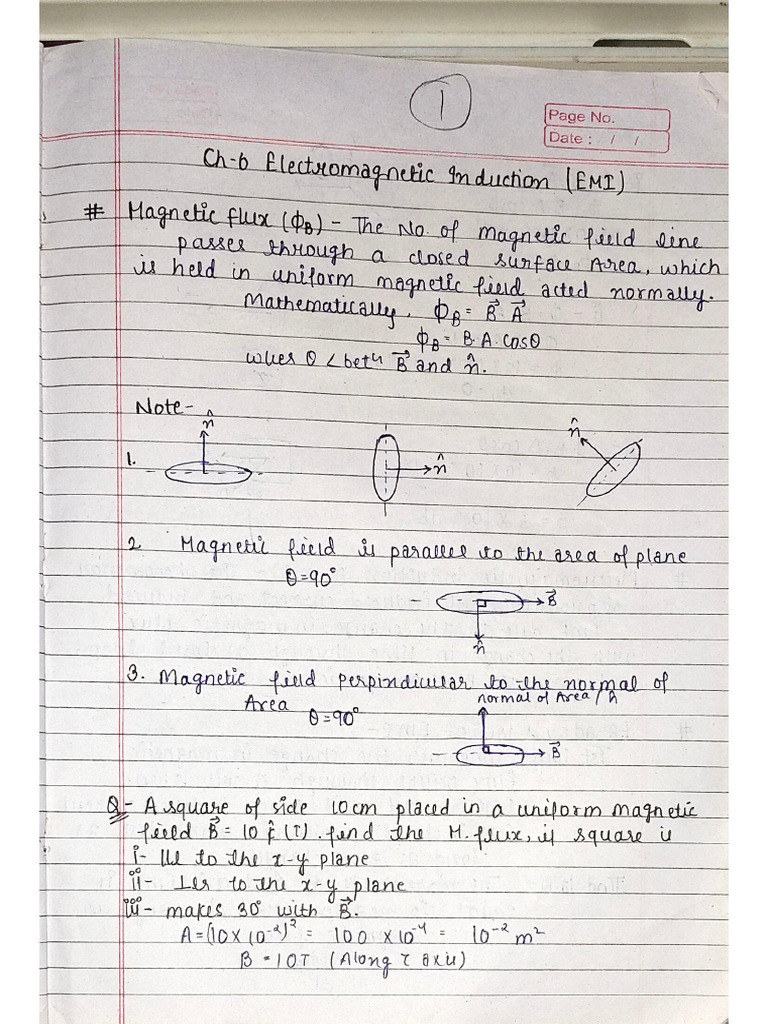 1
Page No.
Date : / /
Ch-6 Electromagnetic Induction (EMI)
# Magnetic flux (ϕB) - The No. of magnetic field line
passes through a closed surface Area, which
is held in uniform magnetic field acted normally.
Mathematically, ϕB = B⃗. A⃗
ϕB = B.A. cosθ
wher θ < betⁿ B⃗ and n̂.
Note-
1.
n̂
n̂
n̂
2. Magnetic field is parallel to the area of plane
θ=90°
B⃗
n̂
3. Magnetic field perpindicular to the normal of
Area θ=90°
normal of Area / n̂
B⃗
Q- A square of side 10cm placed in a uniform magnetic
field B⃗ = 10 k̂ (T). find the M. flux, if square is
i- llel to the x-y plane
ii- ⊥er to the x-y plane
iii- makes 30° with B⃗.
A=(10×10⁻²)² = 100 ×10⁻⁴ = 10⁻² m²
B = 10T (Along z axis)